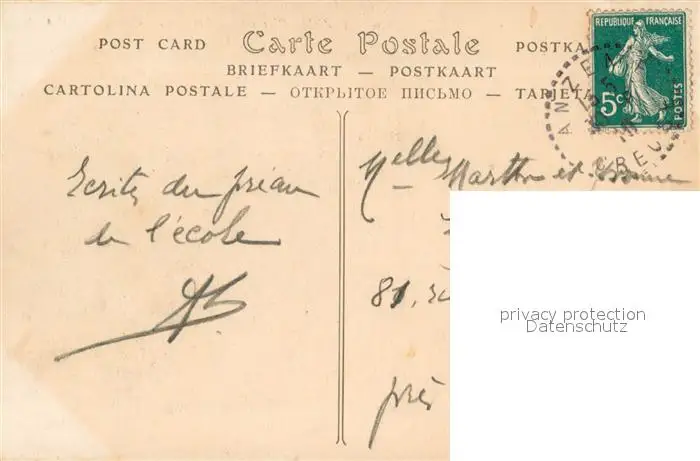 POST CARD Carte Postale POSTKA
BRIEFKAART — POSTKAART
CARTOLINA POSTALE — ОТКРЫТОЕ ПИСЬМО — TARJETA
REPUBLIQUE FRANÇAISE
5c
POSTES
Ecrites du préau
de l'école
AB
Melles Marthe et
81,
près
privacy protection
Datenschutz